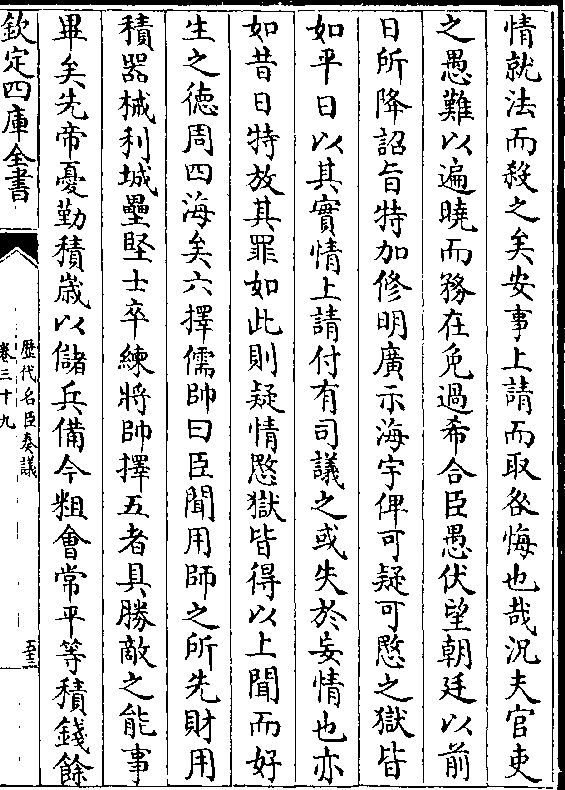 情就法而殺之矣安事上請而取咎悔也哉況夫官吏
之愚難以遍曉而務在免過希合臣愚伏望朝廷以前
日所降詔旨特加修明廣示海宇俾可疑可愍之獄皆
如平日以其實情上請付有司議之或失於妄情也亦
如昔日特放其罪如此則疑情愍獄皆得以上聞而好
生之德周四海矣六擇儒帥曰臣聞用師之所先財用
積器械利城壘堅士卒練將帥擇五者具勝敵之能事
畢矣先帝憂勤積歲以儲兵備今粗會常平等積錢餘
欽定四庫全書
歷代名臣奏議
卷三十九